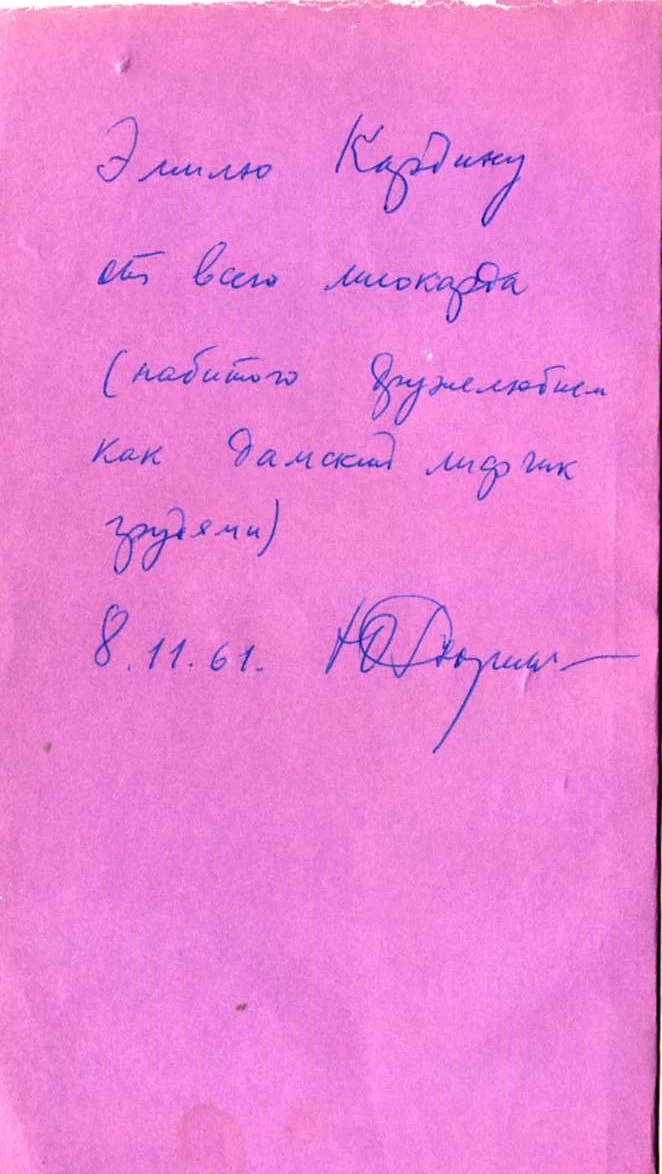 Эмилю Кардину
от всего миокарда
(набитого дружелюбием
как дамский лифчик
грудями)
8.11.61.